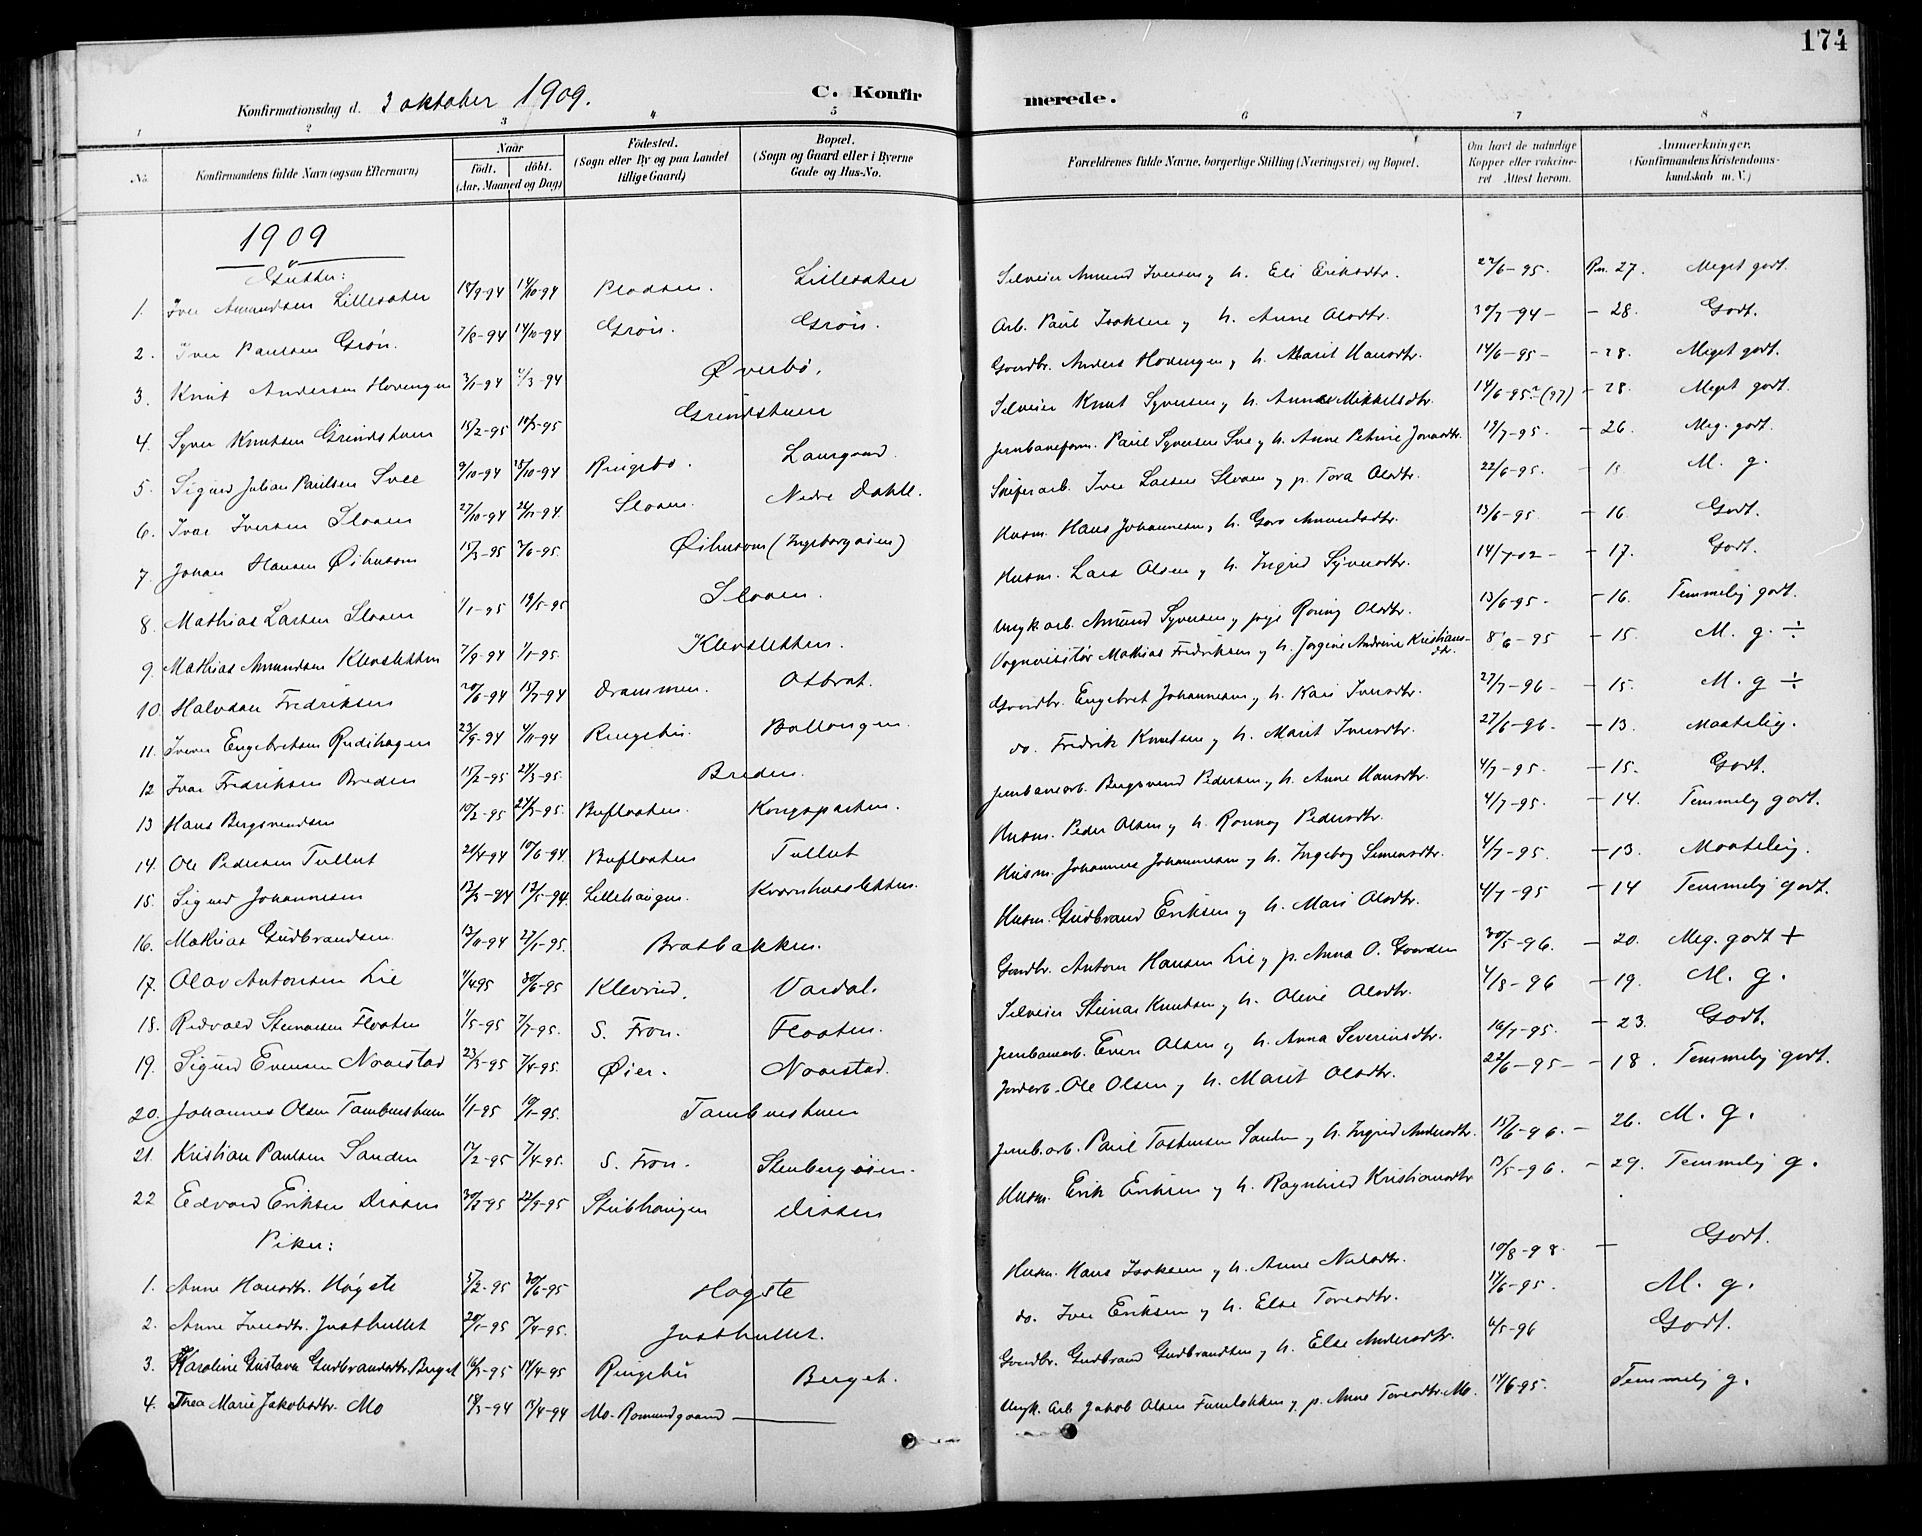 174
Konfirmationsdag d. 3 oktober 1909.
C. Konfirmerede.
1 2 3 4 5 6 7 8
No. Konfirmandens fulde Navn (ogsaa Efternavn) Naar født. døbt. (Aar, Maaned og Dag) Fødested. (Sogn eller By og paa Landet tillige Gaard) Bopæl. (Sogn og Gaard eller i Byerne Gade og Hus-No. Forældrenes fulde Navne, borgerlige Stilling (Næringsvei) og Bopæl. Om havt de naturlige Kopper eller vakcineret. Attest herom. Anmærkninger. (Konfirmandens Kristendomskundskab m. V.)
1909
Gutter:
1. Iver Amundsen Lillesæter 14/10-94 Lillesæter Selveier Amund Iversen og h. Eli Eriksdtr. 22/6-95. Rn. 27. Meget godt.
2. Iver Paulsen Grøn. 7/8-94 14/10-94 Grøn. Grøn. Arb. Paul Isaksen og h. Anne Olsdtr. 30/7-94 - 28. Godt.
3. Knut Andersen Hovengen 4/3-94 Øverbø. Gaardbr. Anders Hovengen og h. Marit Hansdtr. 14/6-95 - 28. Meget godt.
4. Syver Knutsen Grindstuen 15/2-95 Grindstuen Selveier Knut Syversen og h. Anne Mikkelsdtr. 14/6-95 (97) - 28. Meget godt.
5. Sigurd Julian Paulsen Svee 9/10-94 Ringebo. Laurgaard. Jernbaneform. Paul Syversen Sve og h. Anne Petrine Jonsdtr. 19/7-95. - 26. Meg. godt.
6. Ivar Iversen Sloaen 27/10-94 Sloaen. Nedre Dahle. Skiferarb. Iver Larsen Sloaen og p. Tora Olsdtr. 22/6-95. M. g.
7. Johan Hansen Øihusom 15/3-95 3/6-95 Øihusom (Ingeborgøien) Husm. Hans Johannesen og h. Goro Amundsdtr. 13/6-95. - 16. Godt.
8. Mathias Larsen Sloaen 1/1-95 19/5-95 Sloaen. Husm. Lars Olsen og h. Ingrid Syversdtr. 14/7-02 - 17. Godt.
9. Mathias Amundsen Klevsletten 7/9-94 1/1-95. Klevsletten. Ungk. arb. Amund Syversen og pige Rønnøg Olsdtr. 13/6-95 - 16. Temmelig godt.
10. Halvdan Fredriksen 20/6-94 15/7-94 Drammen. Odbrat. Vognvisitør Mathias Fredriksen og h. Jørgine Andrine Kristiansdtr. 8/6-95 - 15. M. g. ÷
11. Iver Engebretsen Rudihagen 23/9-94 4/11-94 Ringebu. Ballangen. Gaardbr. Engebret Johannesen og h. Kari Iversdtr. 27/7-96 - 15. M. g ÷
12 Ivar Fredriksen Breden 15/2-95 24/3-95. Breden. do. Fredrik Knutsen og h. Marit Iversdtr. 27/6-96 - 13. Maatelig.
13 Hans Bergsvendsen 10/2-95 24/3-95. Bufloaten. Kongsparten. Jernbanearb. Bergsvend Pedersen og h. Anne Hansdtr. 4/7-95. - 15. Godt.
14. Ole Pedersen Tullut 21/4-94 10/6-94 Bufloaten Tullut Husm. Peder Olsen og h. Rønnøg Pedersdtr. 4/7-95. - 14. Temmelig godt.
15. Sigurd Johannesen 12/3-94 13/5-94. Lillehaugen. Kvernhussletten. Husm. Johannes Johannesen og h. Ingebog Simensdtr. 4/7-95. - 13. Maatelig.
16. Mathias Gudbrandsen 12/11-94 27/1-95. Bratbakken. Husm. Gudbrand Eriksen og h. Mari Olsdtr. 4/7-95 - 14 Temmelig godt.
17. Olav Antonsen Lie 1/4 95 30/6-95 Klevrud. Vardal. Gaardbr. Anton Hansen Lie og p. Anna O. Gaarden 30/5-96. - 20. Meg. godt +
18. Redvald Steinarsen Floaten 1/5-95 7/7-95. S. Fron. Floaten. Selveier Steinar Knutsen og h. Oline Olsdtr. 4/8-96 - 19. M. g.
19. Sigurd Evensen Naarstad 23/3-95 7/4-95. Øier. Naarstad. Jernbanearb. Even Olsen og h. Anna Severinsdtr. 16/7-95. - 23. Godt.
20. Johannes Olsen Tamburstuen 1/1-95 Tamburstuen Jordarb. Ole Olsen og h. Marit Olsdtr. 22/6-95 - 18. Temmelig godt.
21. Kristian Paulsen Sanden 17/2-95 7/4-95. S. Fron. Stenbergøien. Jernb.arb. Paul Tostensen Sanden og h. Ingrid Andersdtr. 15/6-96. - 26. M. g.
22 Edvard Eriksen Dissen 22/9-95 Stubhaugen Dissen Husm. Erik Eriksen og h. Ragnhild Kristiansdtr 13/5-96. - 29. Temmelig g.
Piker:
1. Anne Hansdtr. Høgste 5/2-95 30/6-95 Høgste Husm. Hans Isaksen og h. Anne Nilsdtr. 10/8-98. - Godt.
2. Anne Iversdtr. Justhullet 20/1-95 7/4-95. Justhullet. do. Iver Eriksen og h. Else Toresdtr. 17/6-95. M. g.
3. Karoline Gustava Gudbrandsdtr. Berget 16/3-95 14/4-95 Ringebu Berget. Gaardbr. Gudbrand Gudbrandsen og h. Else Andersdtr. 6/5-96 Godt.
4. Thea Marie Jakobsdtr. Mo 18/3-94 15/4-94 Mo-Romundgaard — Ungk. Arb Jakob Olsen Furulokken og p. Anne Toresdtr. Mo. 14/6-95. Temmelig g.